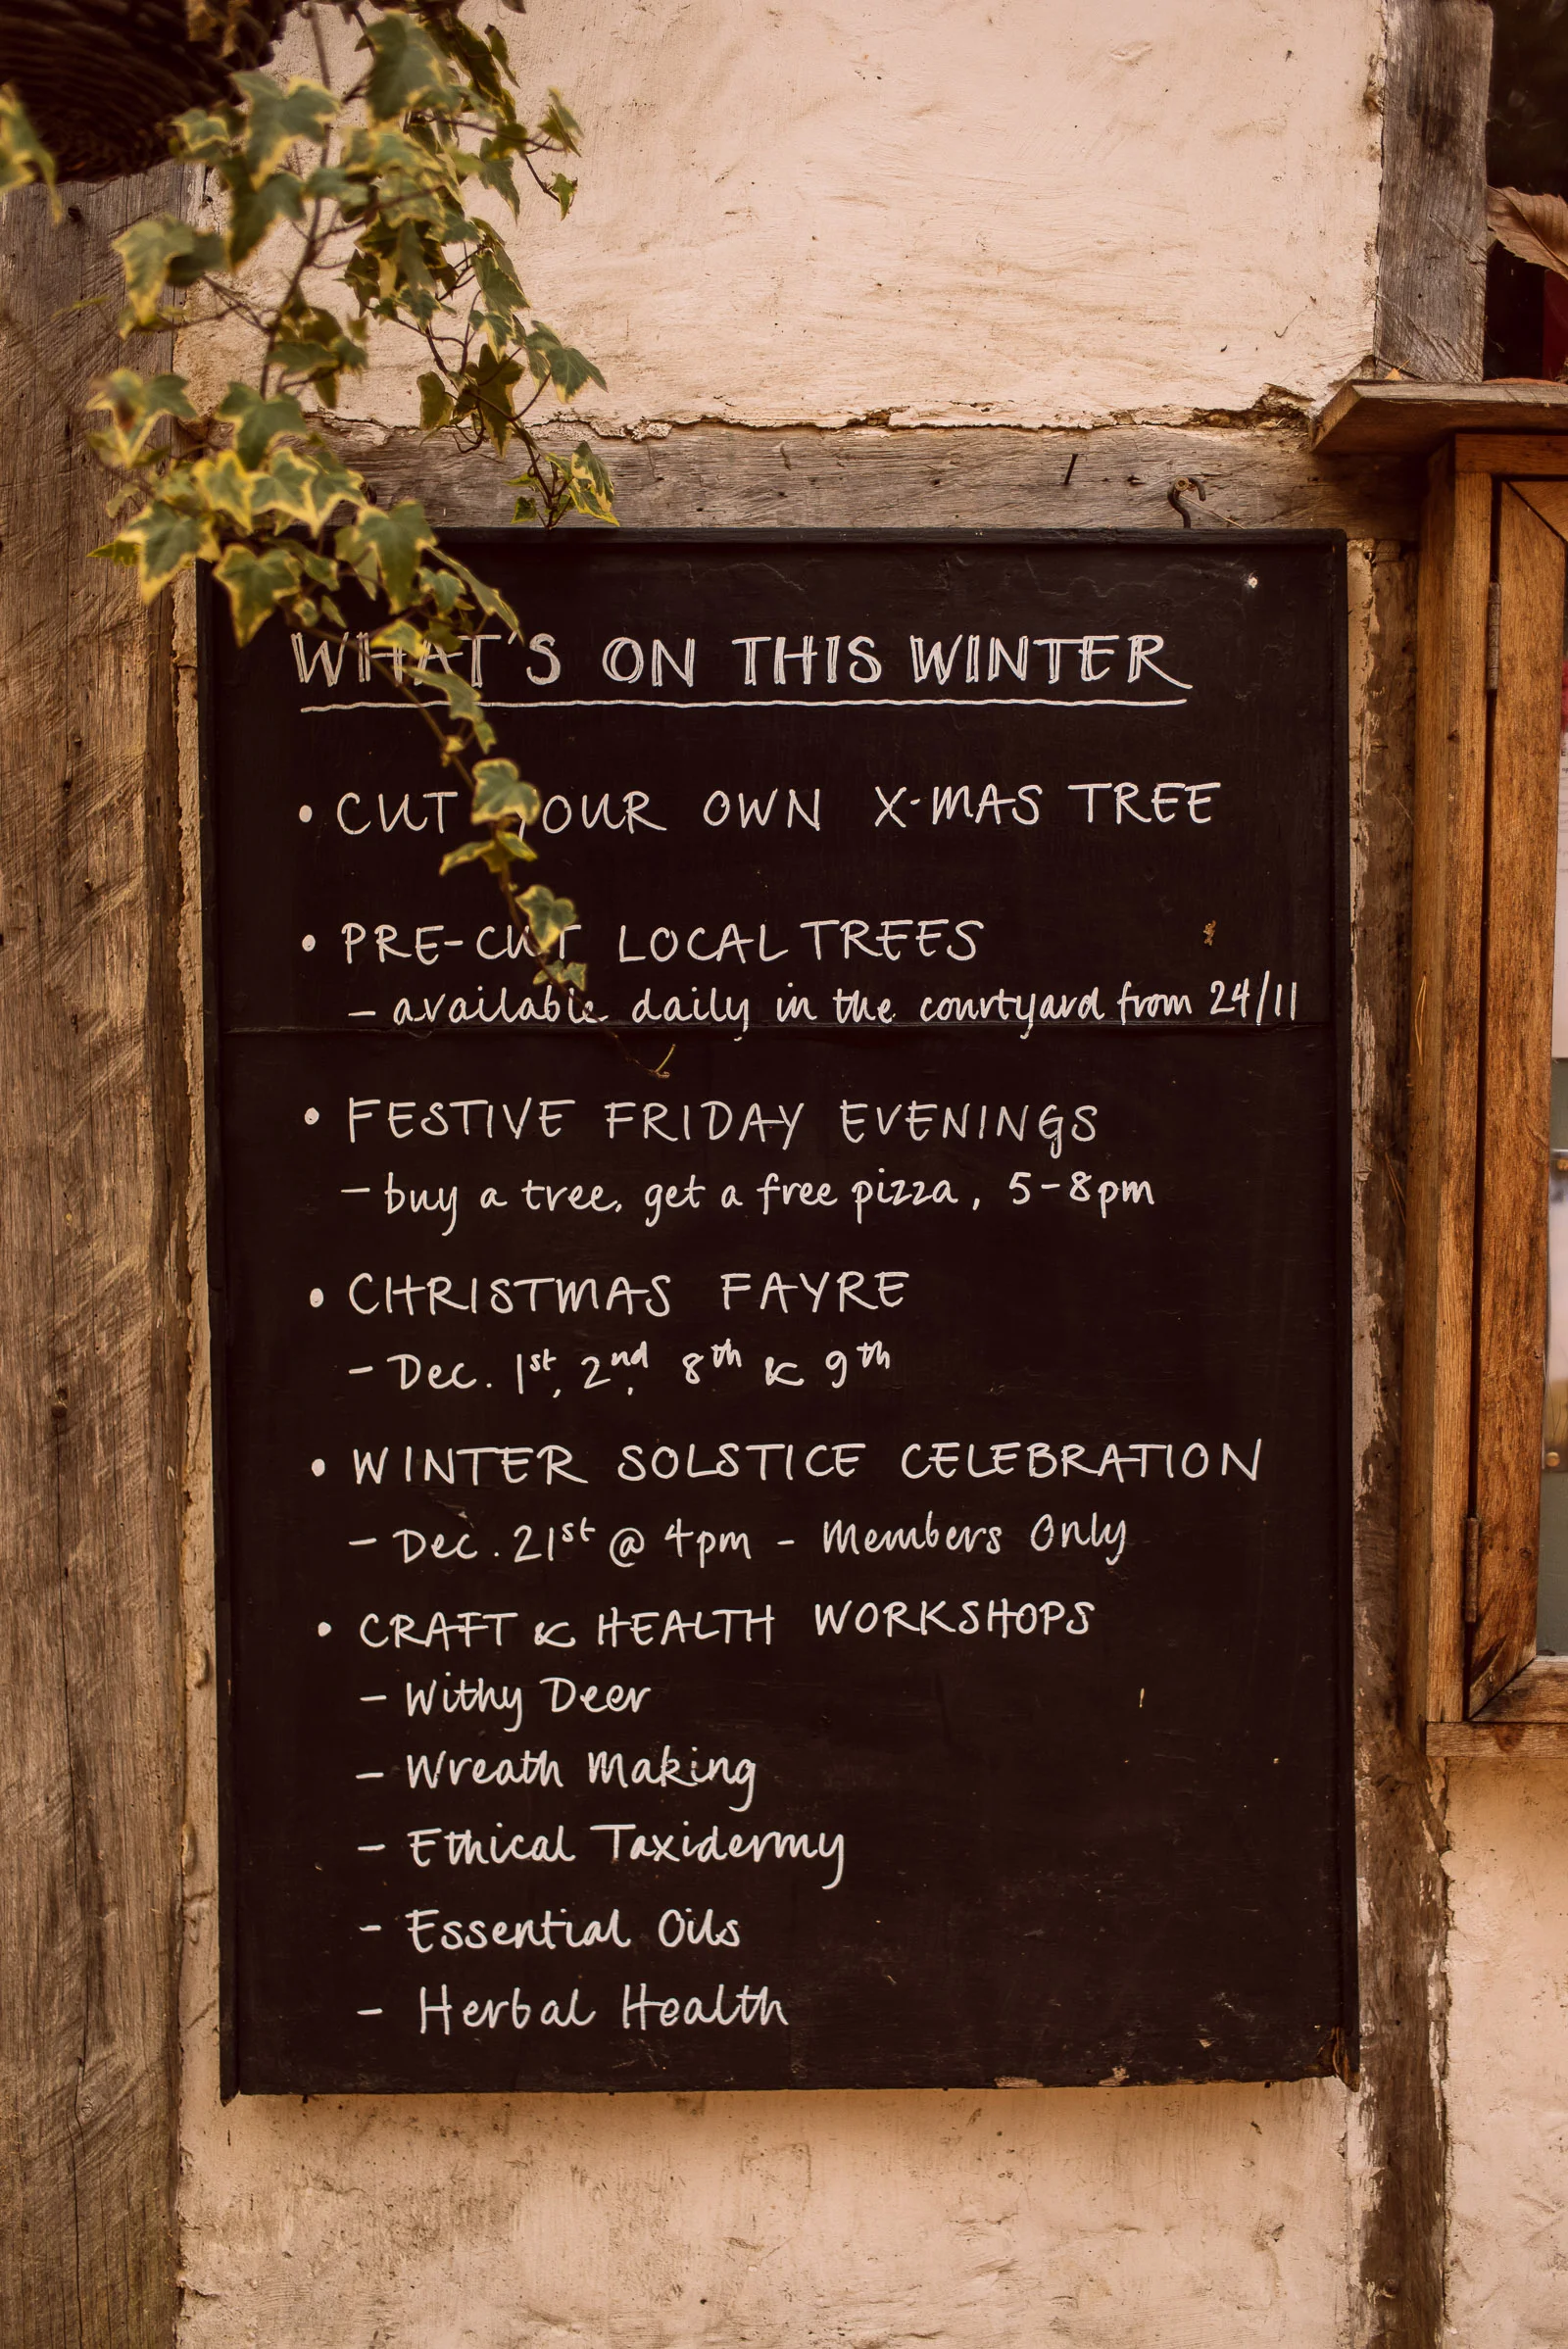 WHAT'S ON THIS WINTER
• CUT YOUR OWN X-MAS TREE
• PRE-CUT LOCAL TREES
– available daily in the courtyard from 24/11
• FESTIVE FRIDAY EVENINGS
– buy a tree, get a free pizza, 5-8pm
• CHRISTMAS FAYRE
– Dec. 1st, 2nd, 8th & 9th
• WINTER SOLSTICE CELEBRATION
– Dec. 21st @ 4pm – Members Only
• CRAFT & HEALTH WORKSHOPS
– Withy Deer
– Wreath Making
– Ethical Taxidermy
– Essential Oils
– Herbal Health